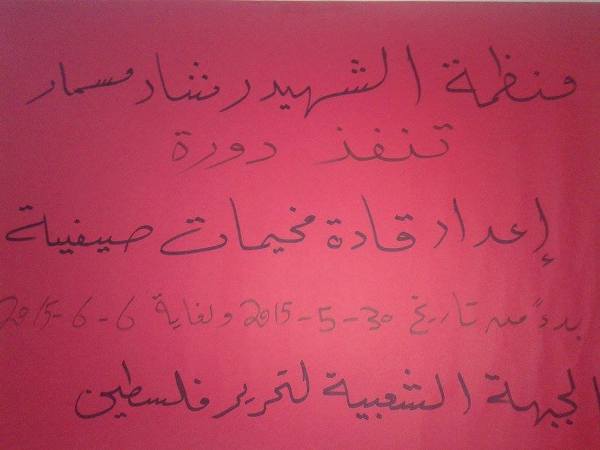 منظمة الشهيد رشاد مسمار
تنفذ دورة
إعداد قادة مخيمات صيفية
بدءً من تاريخ 30-5-2015 ولغاية 6-6-2015
الجبهة الشعبية لتحرير فلسطين